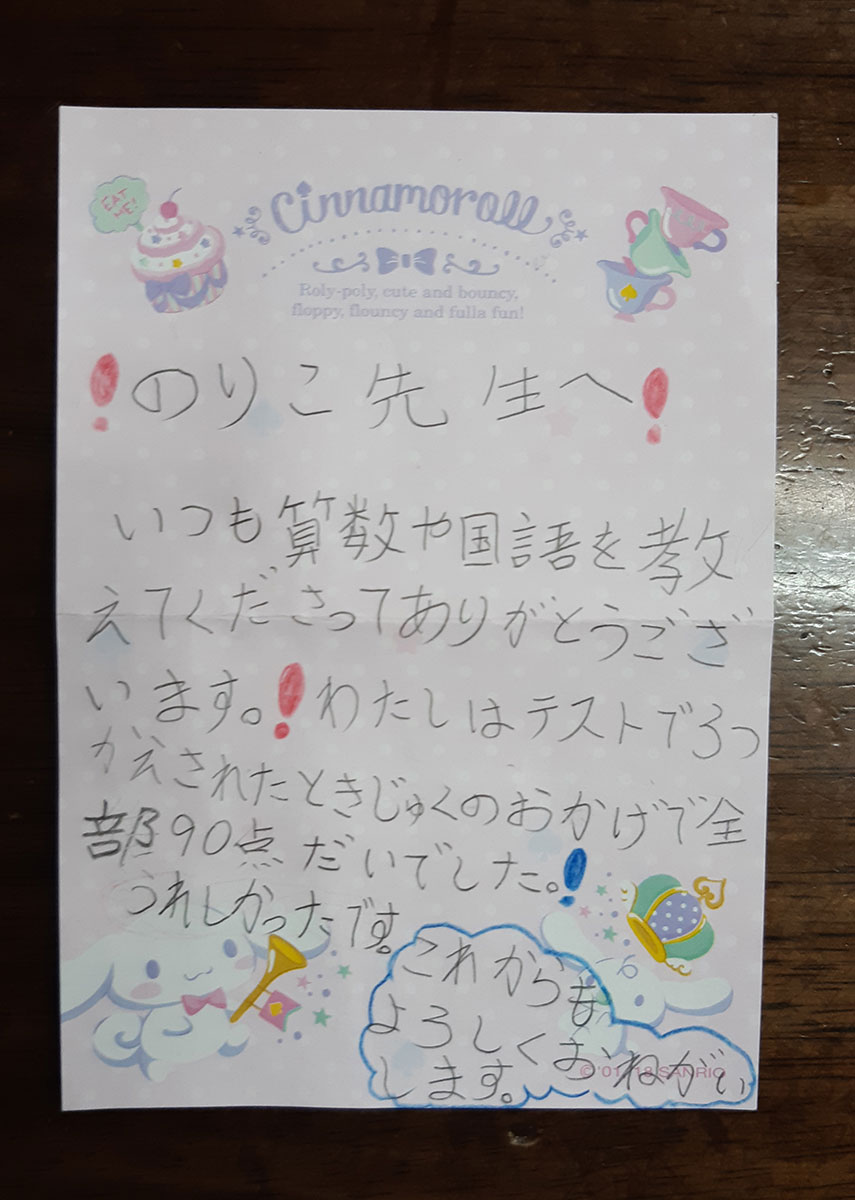 EAT
ME!
Cinnamoroll
Roly-poly, cute and bouncy,
floppy, flouncy and fulla fun!
❗のりこ先生へ❗
いつも算数や国語を教
えてくださってありがとうござ
います。❗わたしはテストでろっ
かえされたときじゅくのおかげで全
部90点だいでした。❗
うれしかったです。
これからも
よろしくおねがい
します。
SANRIO